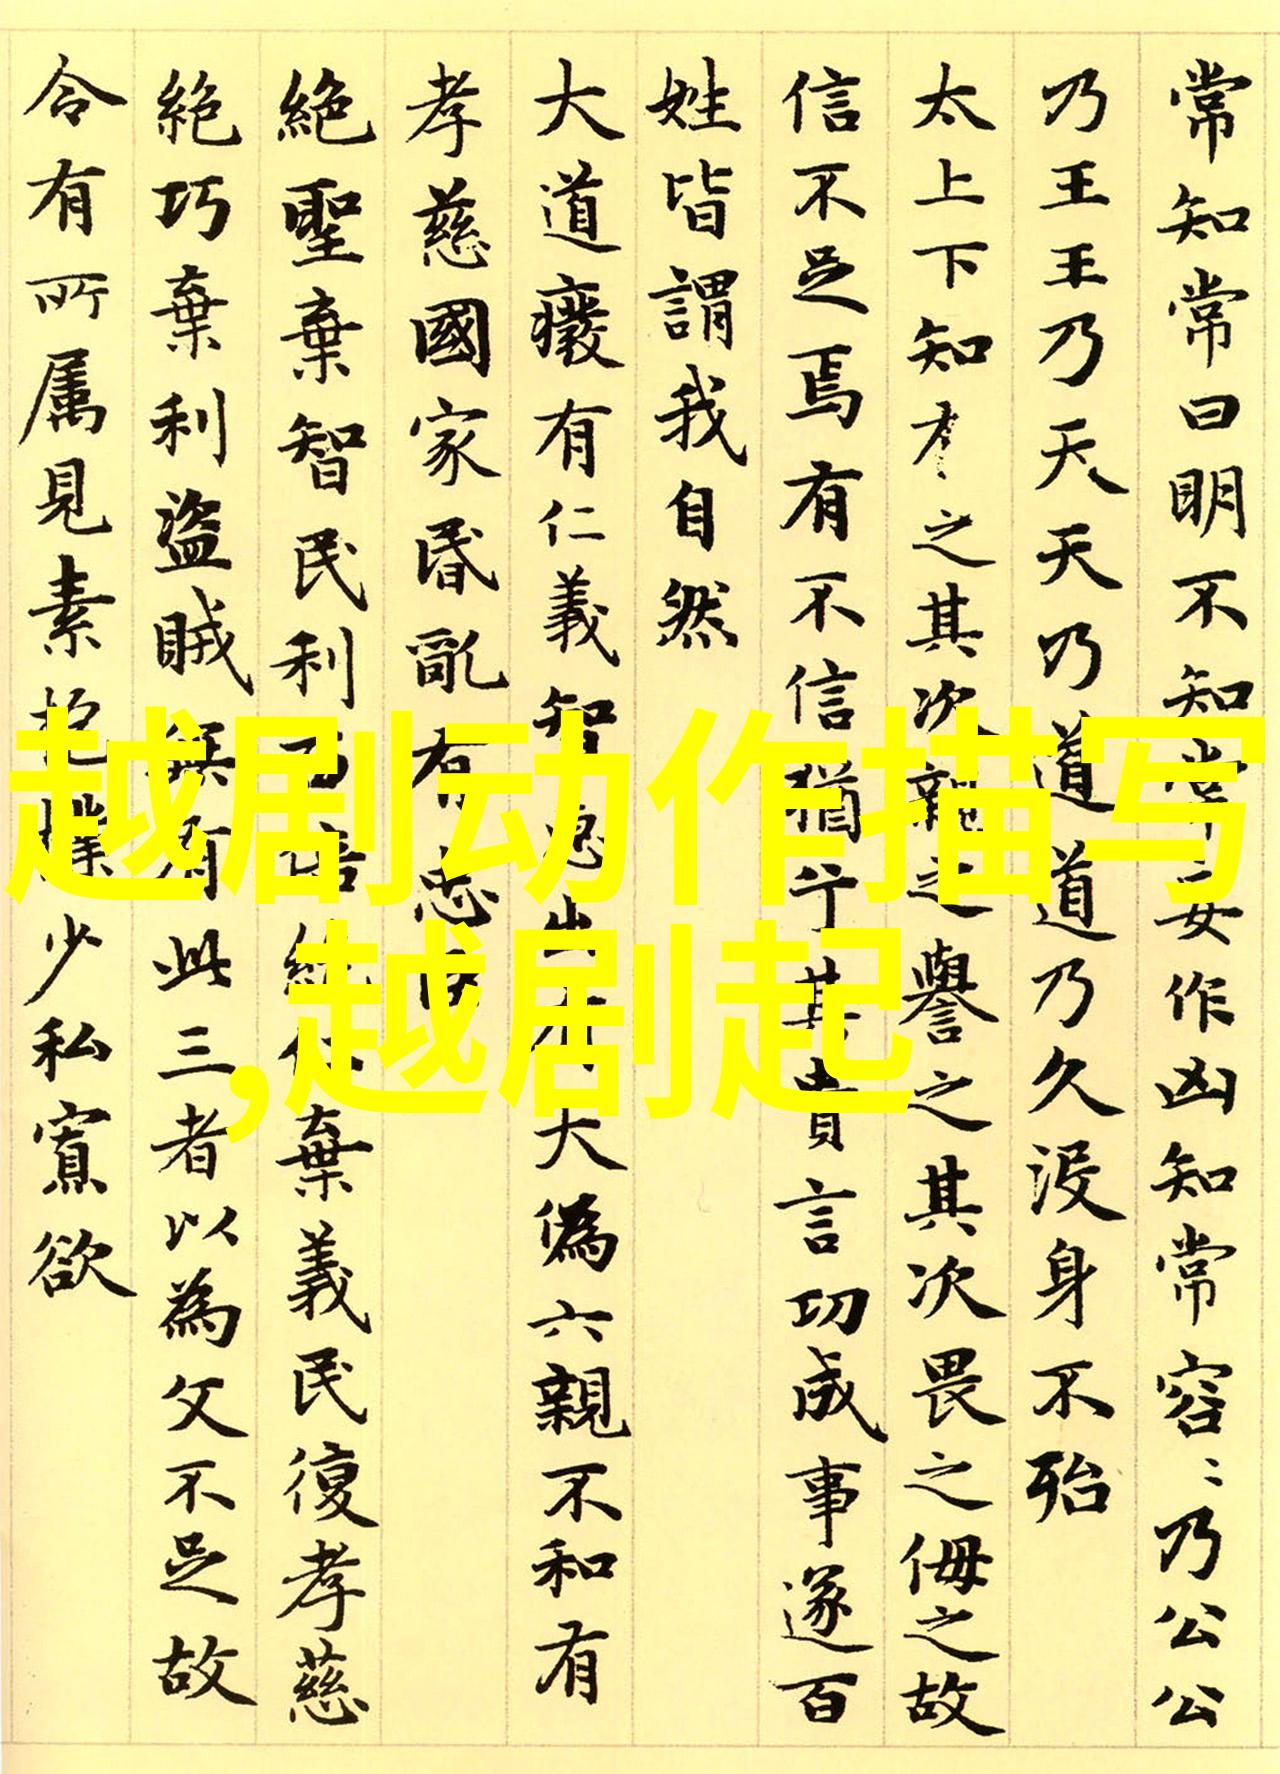 常知常曰明不知常妄作凶知常容〻乃公公
乃王王乃天天乃道道乃久没身不殆
太上下知有之其次親之譽之其次畏之侮之故
信不足焉有不信猶兮其貴言功成事遂百
姓皆謂我自然
大道癈有仁義智惠出有大偽六親不和有
孝慈國家昏亂有忠臣
絶聖棄智民利百倍絶仁棄義民復孝慈
絶巧棄利盜賊無有此三者以為文不足故
令有所属見素抱樸少私寡欲
越剧动作描写
,越剧起